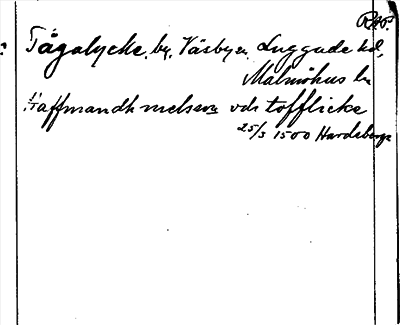 RAP.
Tågalycke, by, Väsby sn Luggude hd,
Malmöhus ln
Haffmandh melsem vdi tofflicke
25/3 1500 Hardeberga